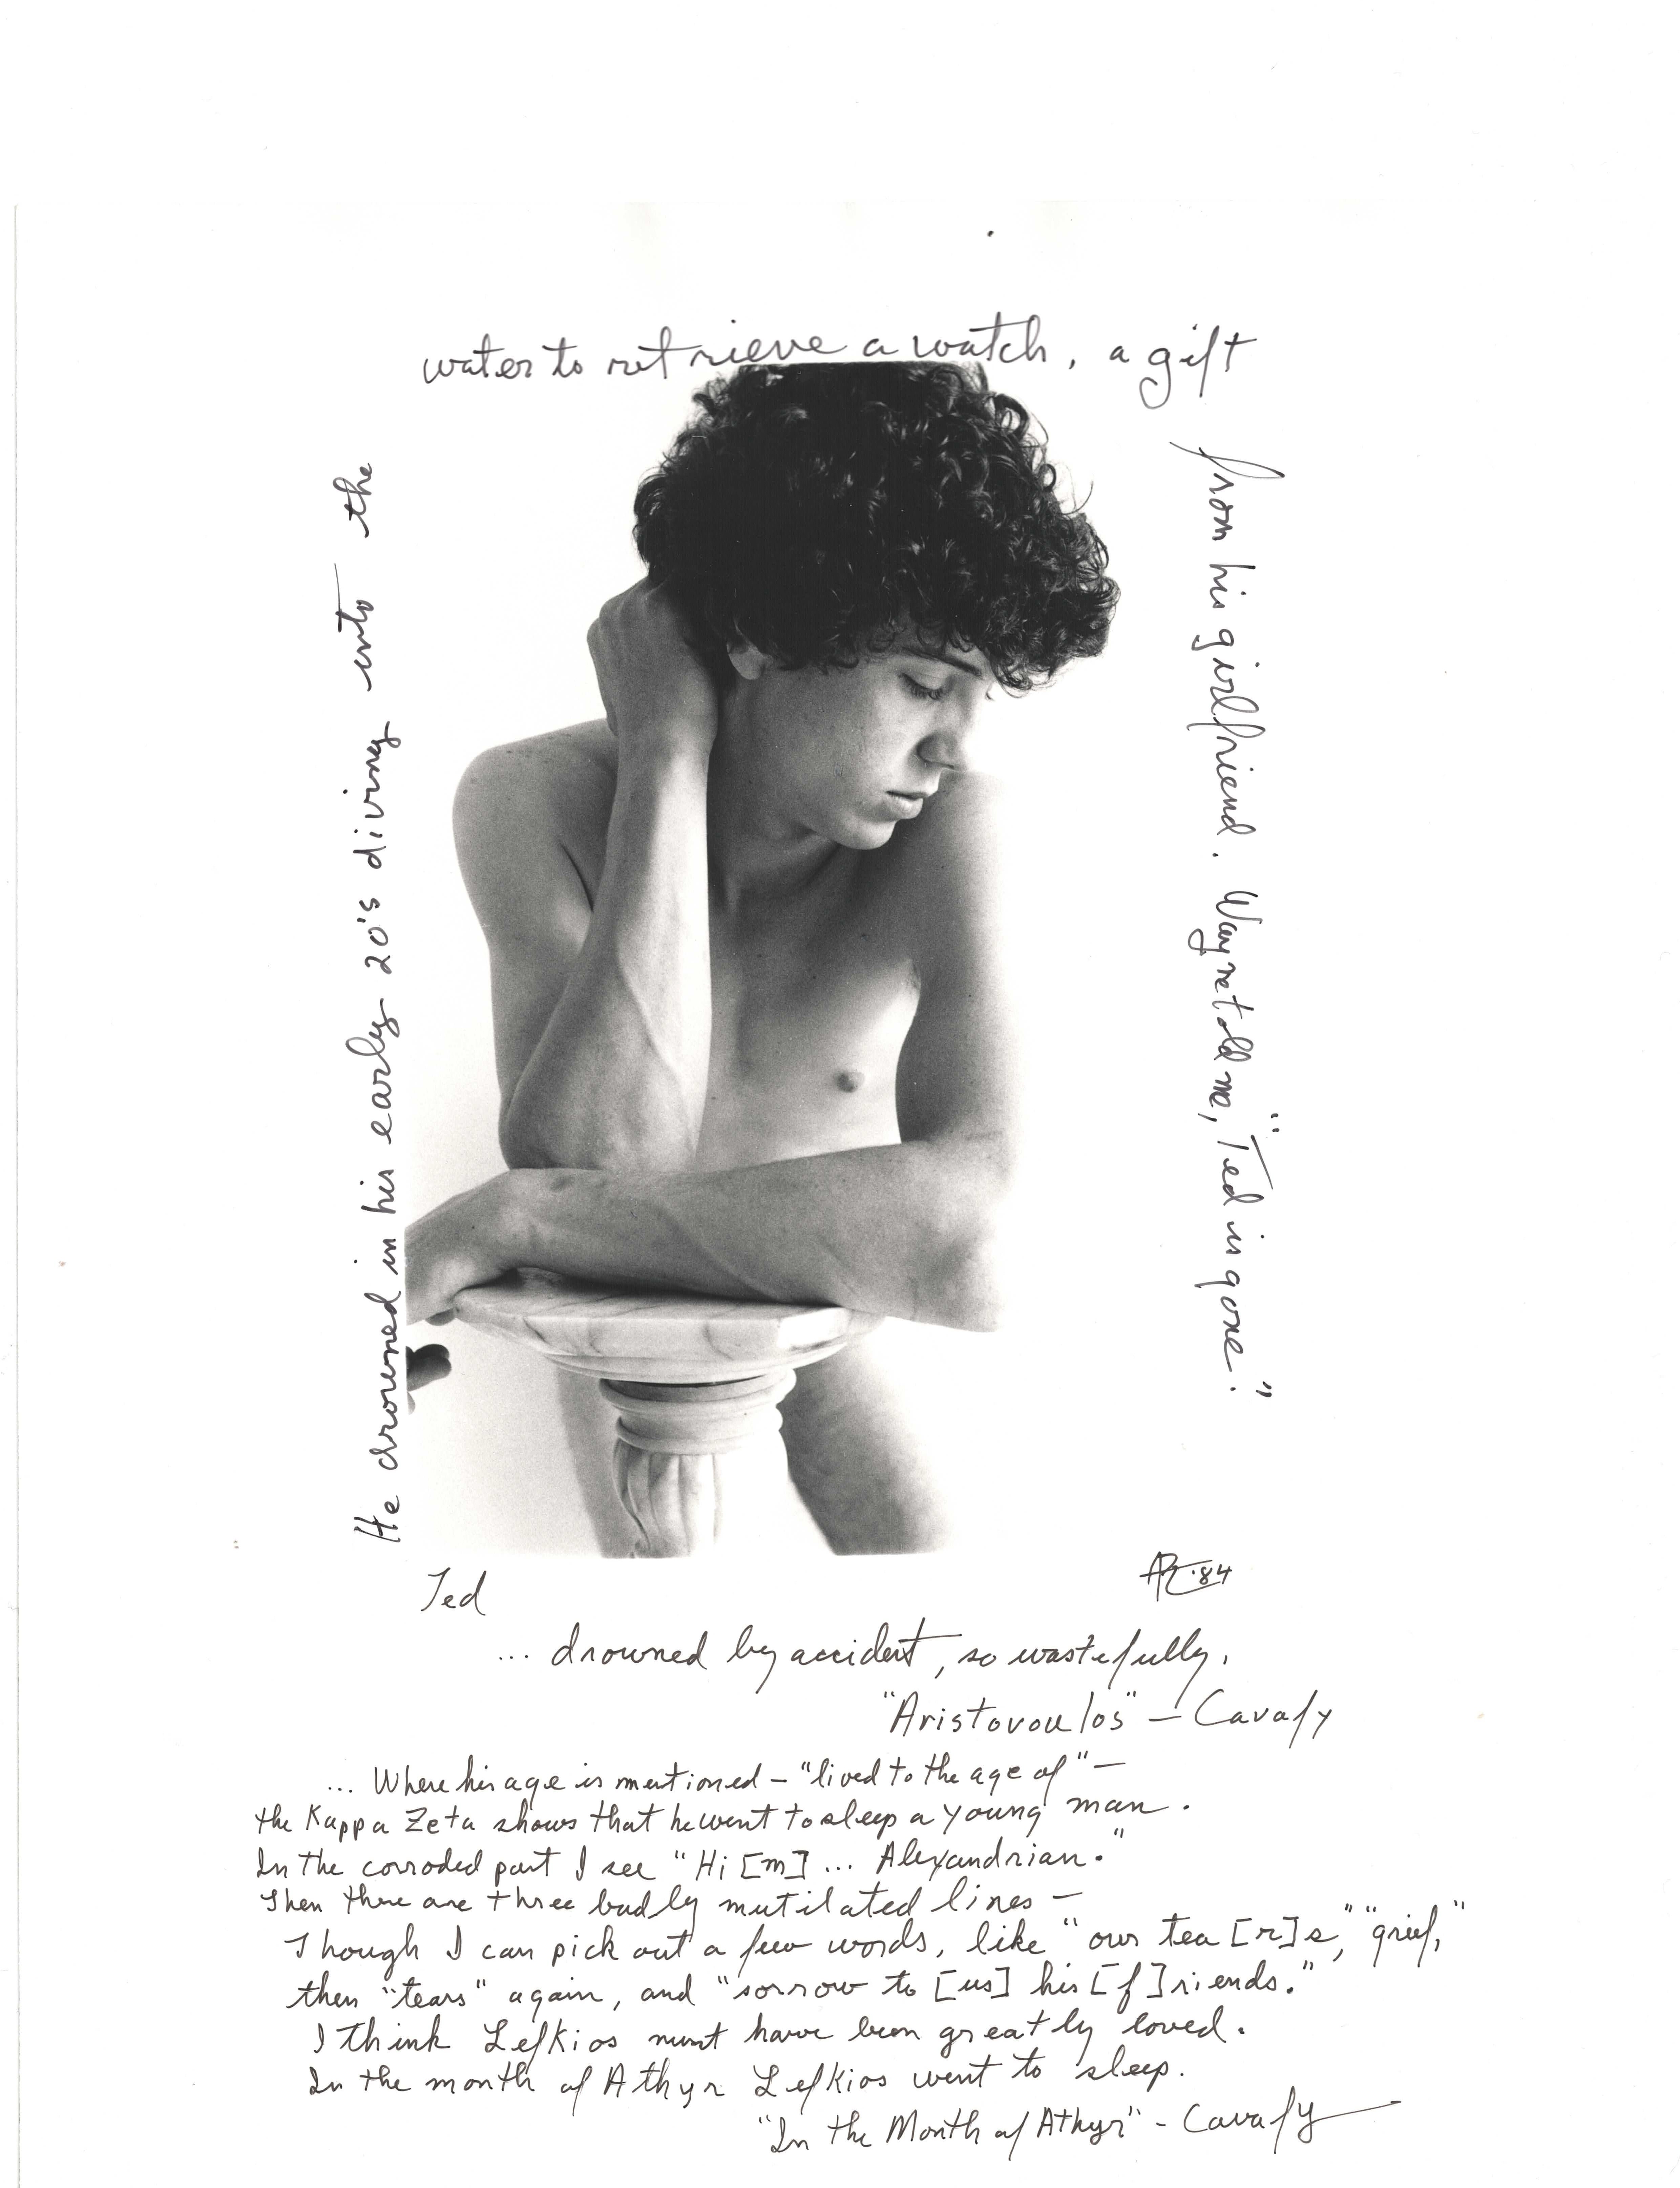 He drowned in his early 20's diving into the
water to retrieve a watch, a gift
from his girlfriend. Wayne told me, "Ted is gone."
Ted
'84
... drowned by accident, so wastefully.
"Aristovoulos" — Cavafy
... Where his age is mentioned — "lived to the age of" —
the Kappa Zeta shows that he went to sleep a young man.
In the corroded part I see "Hi [m] ... Alexandrian."
Then there are three badly mutilated lines —
Though I can pick out a few words, like "our tea [r]s," "grief,"
then "tears" again, and "sorrow to [us] his [f]riends."
I think Lefkios must have been greatly loved.
In the month of Athyr Lefkios went to sleep.
"In the Month of Athyr" - Cavafy